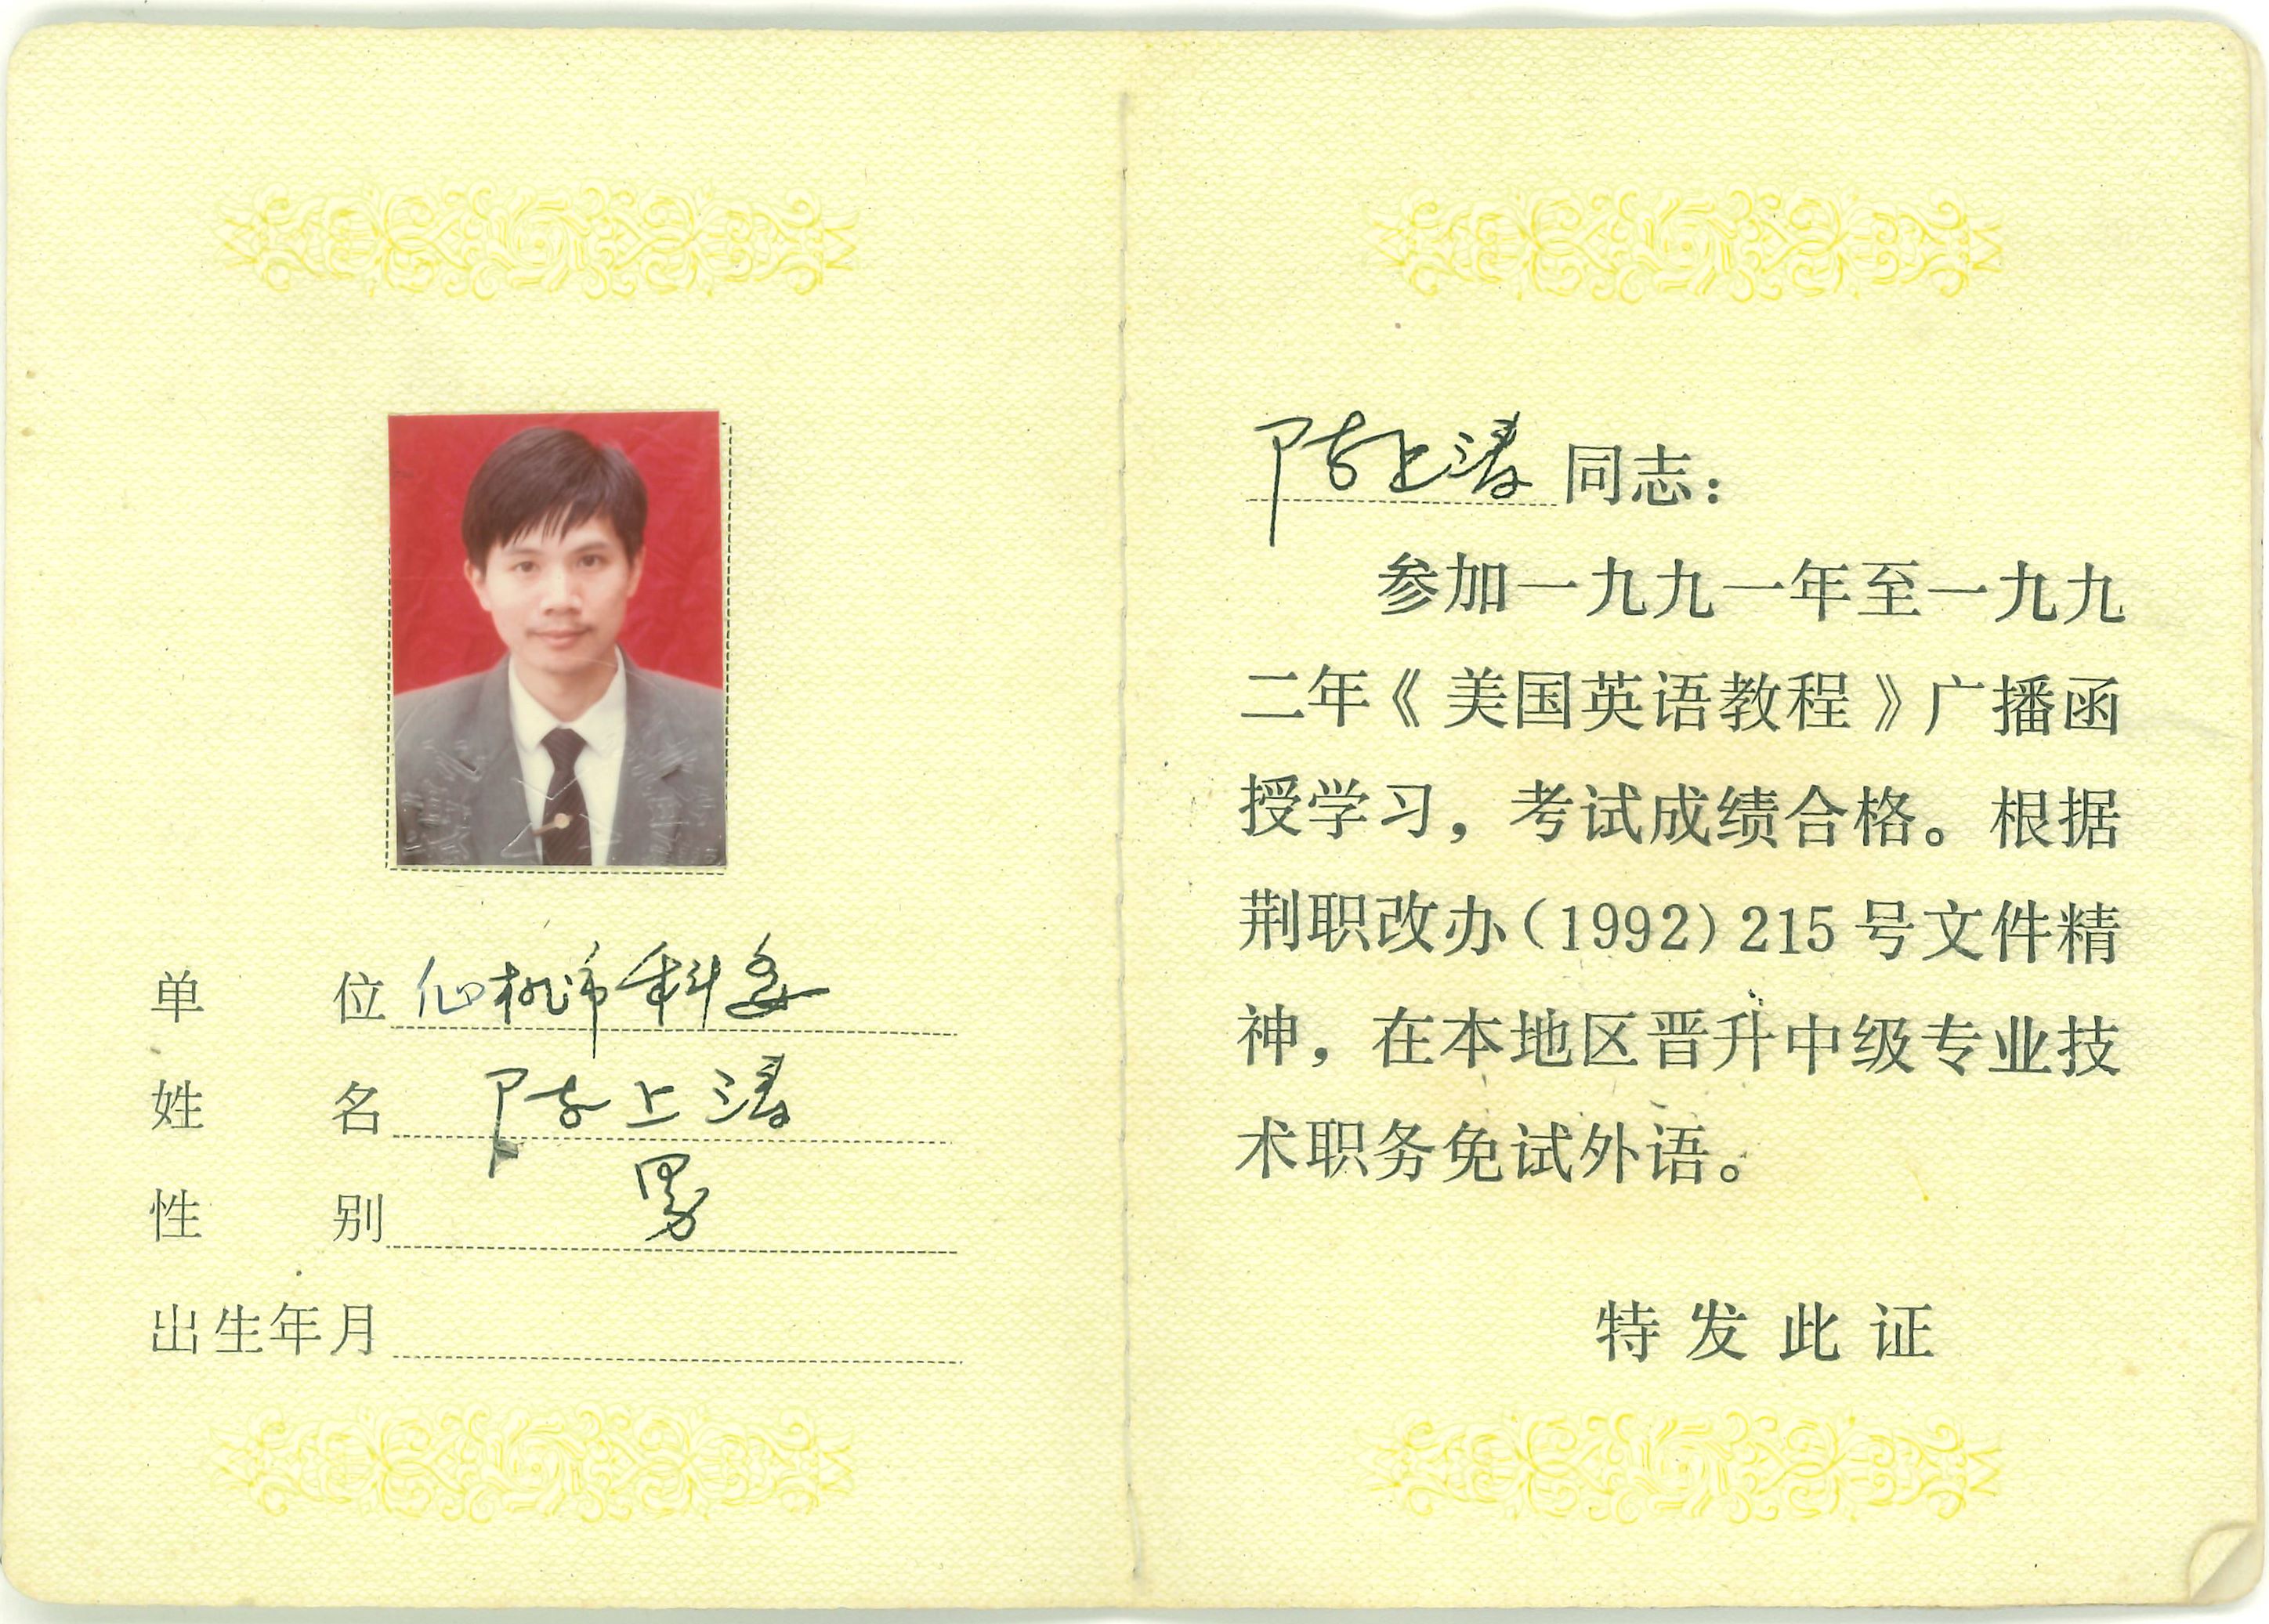 单位 仙桃市科委
姓名 陈上清
性别 男
出生年月
陈上清同志：
参加一九九一年至一九九
二年《美国英语教程》广播函
授学习，考试成绩合格。根据
荆职改办(1992)215号文件精
神，在本地区晋升中级专业技
术职务免试外语。
特发此证